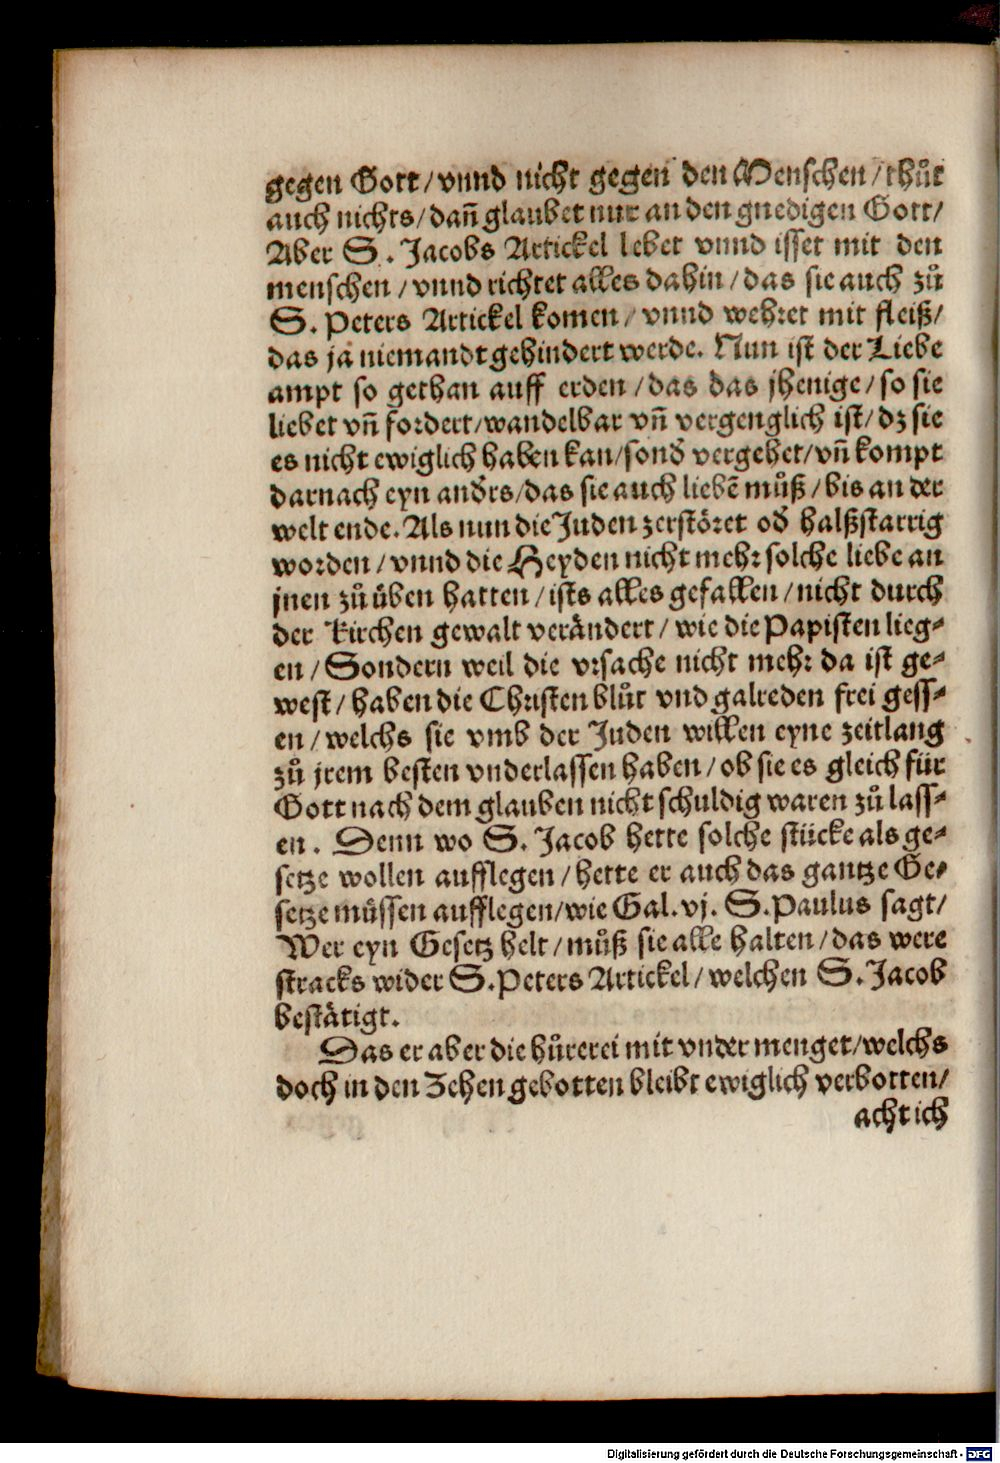 gegen Gott/vnnd nicht gegen den Menschen/thůt
auch nichts/dañ glaubet nur an den gnedigen Gott/
Aber S. Jacobs Artickel lebet vnnd isset mit den
menschen/vnnd richtet alles dahin/das sie auch zů
S. Peters Artickel komen/vnnd wehret mit fleiß/
das ja niemandt gehindert werde. Nun ist der Liebe
ampt so gethan auff erden/das das jhenige/so sie
liebet vñ fordert/wandelbar vñ vergenglich ist/dz sie
es nicht ewiglich haben kan/sonď vergehet/vñ kompt
darnach eyn anďrs/das sie auch liebē můß/bis an der
welt ende. Als nun die Juden zerstöret oď halßstarrig
worden/vnnd die Heyden nicht mehr solche liebe an
jnen zů üben hatten/ists alles gefallen/nicht durch
der Kirchen gewalt verändert/wie die Papisten lieg-
en/Sondern weil die vrsache nicht mehr da ist ge-
west/haben die Christen blůt vnd galreden frei gess-
en/welchs sie vmb der Juden willen eyne zeitlang
zů jrem besten vnderlassen haben/ob sie es gleich für
Gott nach dem glauben nicht schuldig waren zů lass-
en. Denn wo S. Jacob hette solche stücke als ge-
setze wollen aufflegen/hette er auch das gantze Ge-
setze müssen aufflegen/wie Gal. vj. S. Paulus sagt/
Wer eyn Gesetz helt/můß sie alle halten/das were
stracks wider S. Peters Artickel/welchen S. Jacob
bestätigt.
Das er aber die hůrerei mit vnder menget/welchs
doch in den Zehen gebotten bleibt ewiglich verbotten/
acht ich
Digitalisierung gefördert durch die Deutsche Forschungsgemeinschaft - DFG